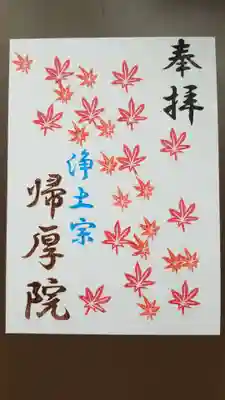 奉拝
浄土宗
帰厚院